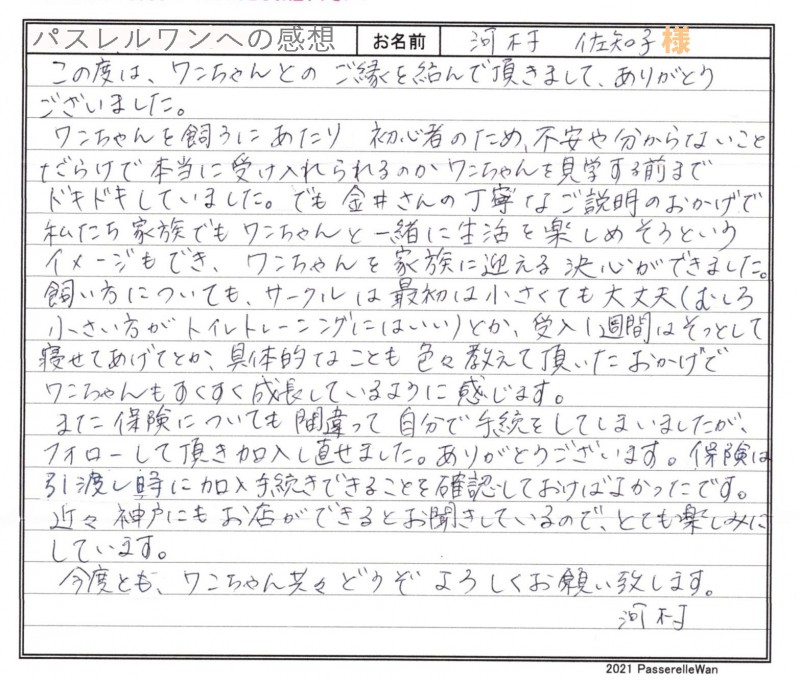 パスレルワンへの感想 お名前 河村 佐知子 様
この度は、ワンちゃんとの ご縁を結んで頂きまして、ありがとう
ございました。
ワンちゃんを飼うにあたり 初心者のため、不安や分からないこと
だらけで本当に受け入れられるのかワンちゃんを見学する前まで
ドキドキしていました。でも 金井さんの丁寧なご説明のおかげで
私たち家族でもワンちゃんと一緒に生活を楽しめそうという
イメージもでき、ワンちゃんを家族に迎える決心ができました。
飼い方についても、サークルは最初は小さくても大丈夫(むしろ
小さい方がトイレトレーニングにはいい)とか、受入1週間はそっとして
寝せてあげてとか、具体的なことも色々教えて頂いたおかげで
ワンちゃんもすくすく成長しているように感じます。
また保険についても間違って自分で手続をしてしまいましたが、
フォローして頂き加入し直せました。ありがとうございます。保険は
引渡し時に加入手続きできることを確認しておけばよかったです。
近々神戸にもお店ができるとお聞きしているので、とても楽しみに
しています。
今度とも、ワンちゃん共々どうぞよろしくお願い致します。
河村
2021 PasserelleWan